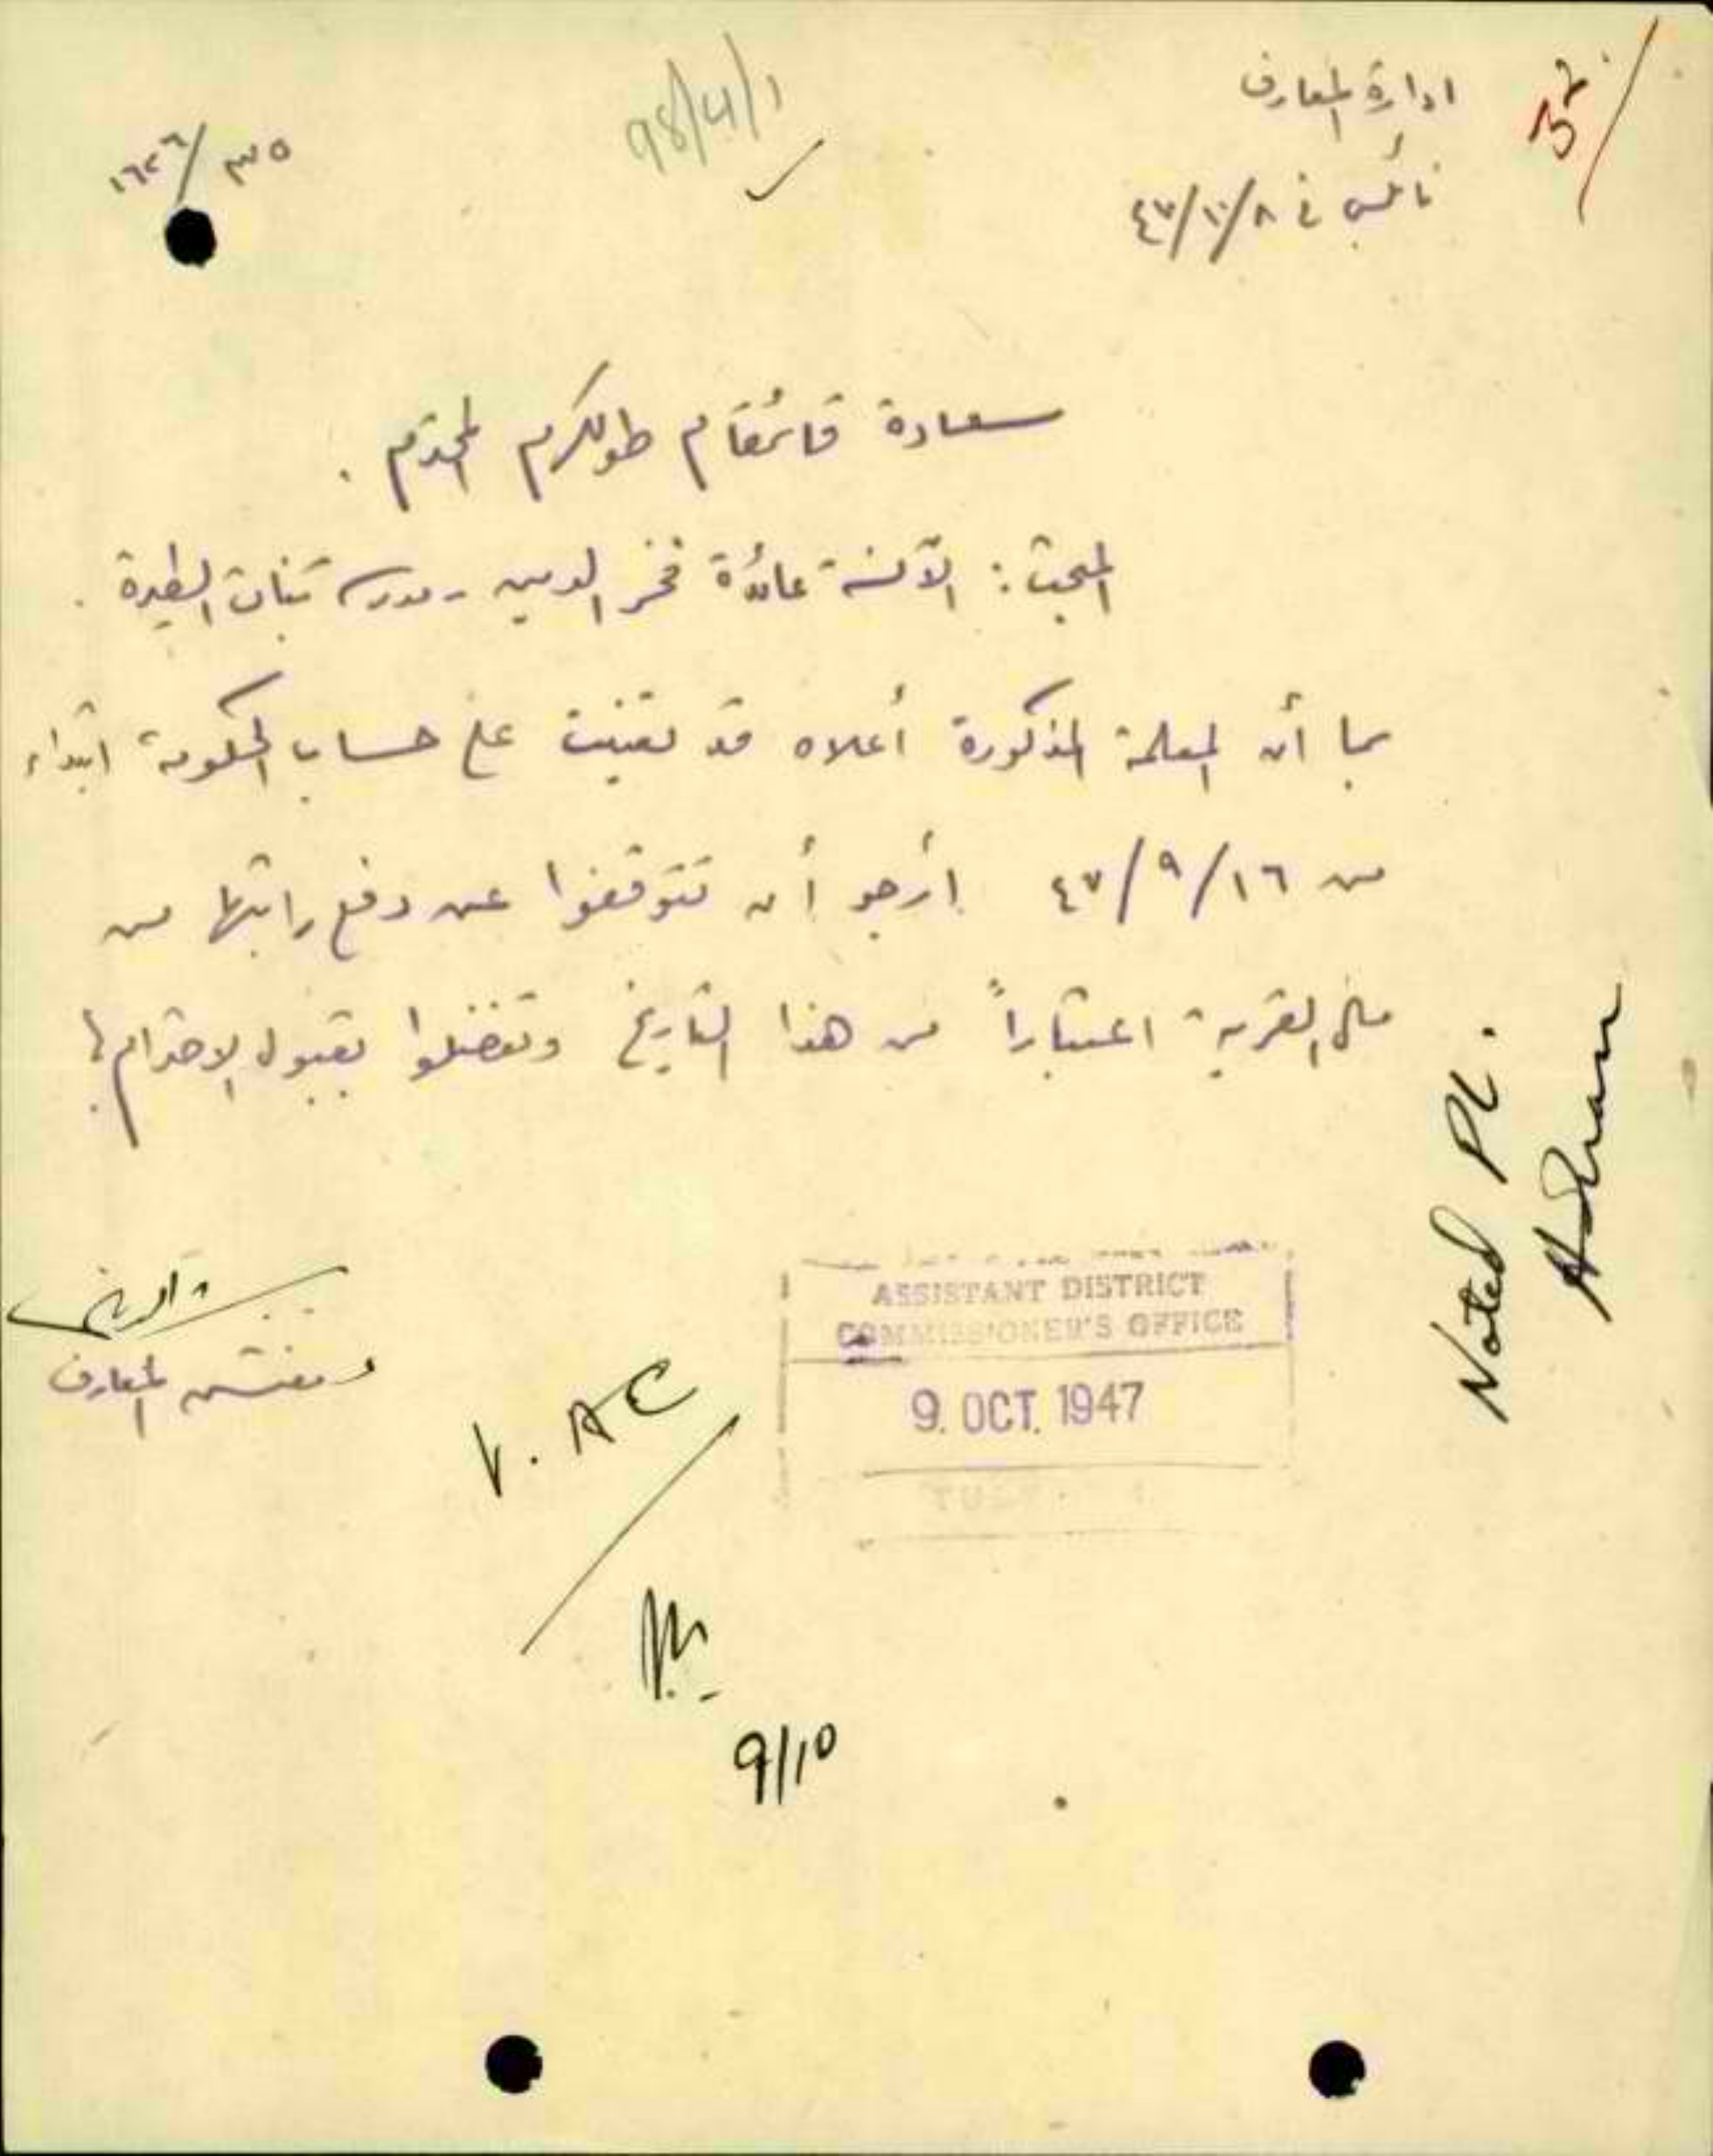 ادارة المعارف
نابلس في ٤٧/١٠/٨
98/4/1
سعادة قائمقام طولكرم المحترم .
المبحث : الآنسة عائدة فخر الدين - مدرسة بنات الطيرة .
بما أن المعلمة المذكورة أعلاه قد تعينت على حساب الحكومة ابتداء
من ٤٧/٩/١٦ أرجو أن تتوقفوا عن دفع راتبها من
مال القرية اعتباراً من هذا التاريخ وتفضلوا بقبول الاحترام ؛
مفتش المعارف
ASSISTANT DISTRICT
COMMISSIONER'S OFFICE
9. OCT. 1947
V. AC
9/10
Noted Pl.